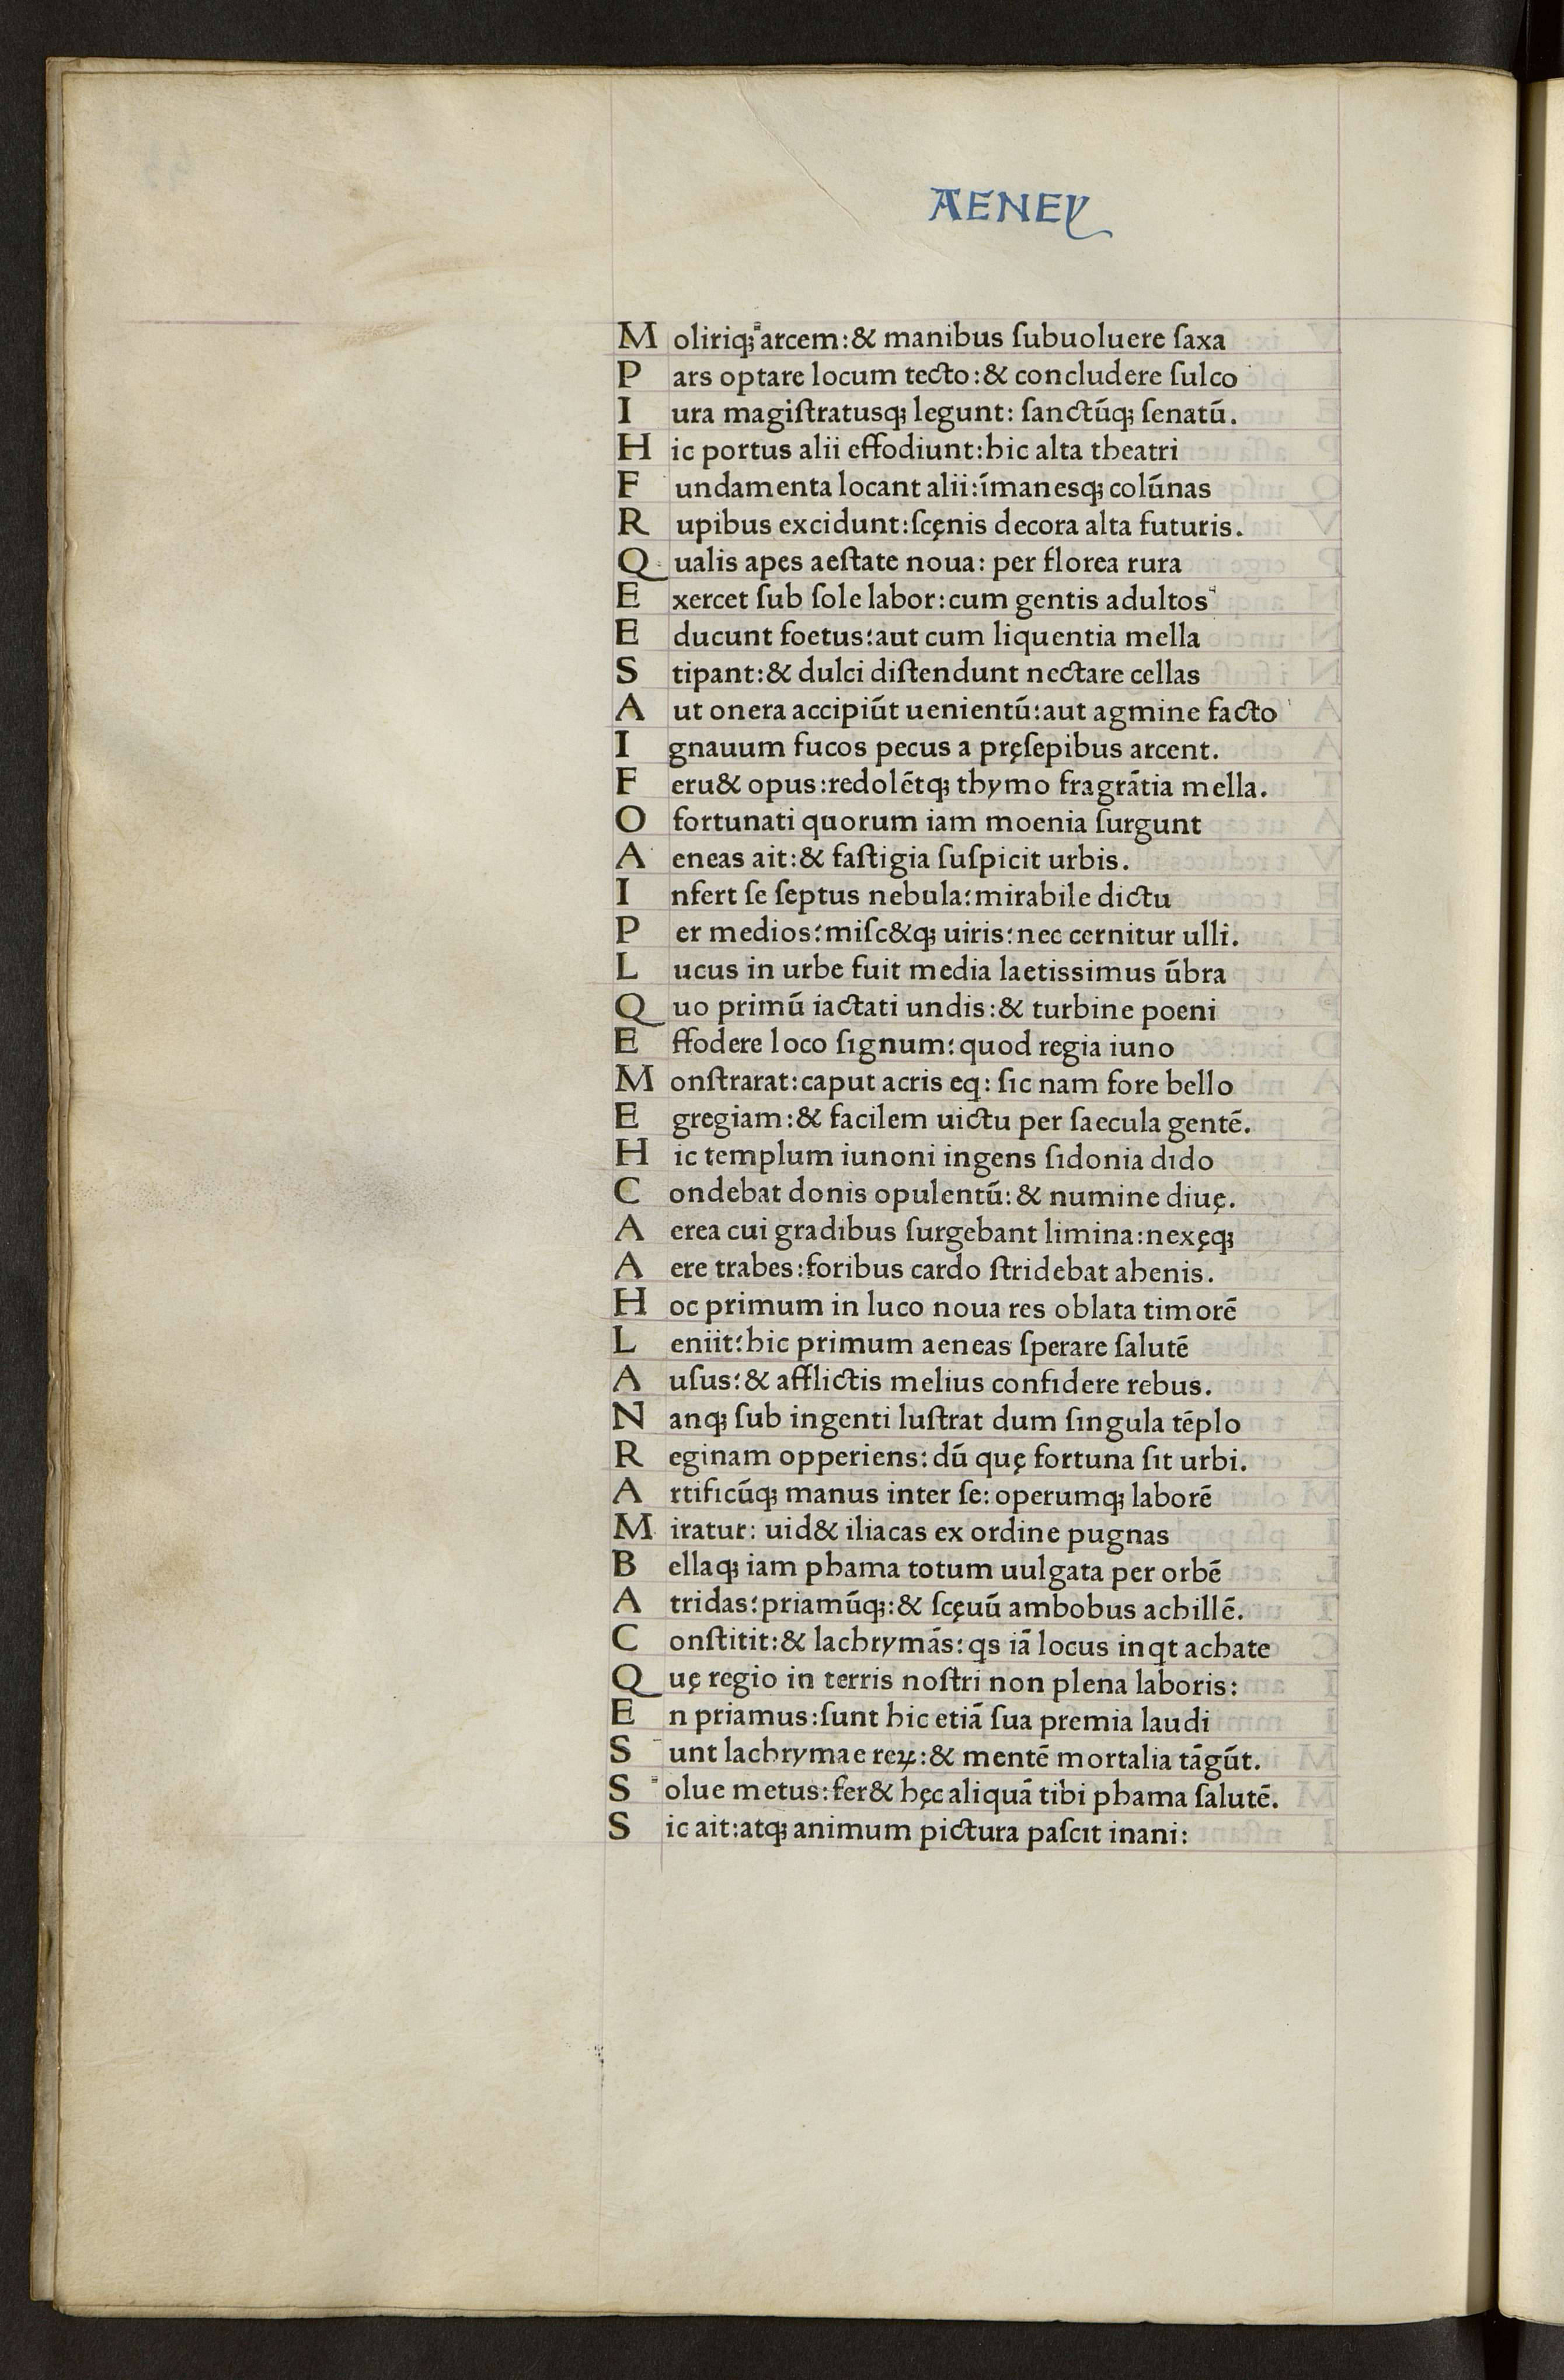 AENEꝩ
M oliriq; arcem:& manibus ſubuoluere ſaxa
P ars optare locum tecto:& concludere ſulco
I ura magiſtratusq; legunt: ſanctūq; ſenatū.
H ic portus alii effodiunt:hic alta theatri
F undamenta locant alii:īmanesq; colūnas
R upibus excidunt:ſcęnis decora alta futuris.
Q ualis apes aeſtate noua: per florea rura
E xercet ſub ſole labor:cum gentis adultos
E ducunt foetus:aut cum liquentia mella
S tipant:& dulci diſtendunt nectare cellas
A ut onera accipiūt uenientū:aut agmine facto
I gnauum fucos pecus a pręſepibus arcent.
F eru& opus:redolētq; thymo fragrātia mella.
O fortunati quorum iam moenia ſurgunt
A eneas ait:& faſtigia ſuſpicit urbis.
I nfert ſe ſeptus nebula:mirabile dictu
P er medios:miſc&q; uiris:nec cernitur ulli.
L ucus in urbe fuit media laetissimus ūbra
Q uo primū iactati undis:& turbine poeni
E ffodere loco ſignum:quod regia iuno
M onſtrarat:caput acris eq: ſic nam fore bello
E gregiam:& facilem uictu per ſaecula gentē.
H ic templum iunoni ingens ſidonia dido
C ondebat donis opulentū:& numine diuę.
A erea cui gradibus ſurgebant limina:nexęq;
A ere trabes:foribus cardo ſtridebat ahenis.
H oc primum in luco noua res oblata timorē
L eniit:hic primum aeneas ſperare ſalutē
A uſus:& afflictis melius confidere rebus.
N anq; ſub ingenti luſtrat dum ſingula tēplo
R eginam opperiens:dū quę fortuna ſit urbi.
A rtificūq; manus inter ſe:operumq; laborē
M iratur: uid& iliacas ex ordine pugnas
B ellaq; iam phama totum uulgata per orbē
A tridas:priamūq;:& ſcęuū ambobus achillē.
C onſtitit:& lachrymās:qs iā locus inqt achate
Q uę regio in terris noſtri non plena laboris:
E n priamus:ſunt hic etiā ſua premia laudi
S unt lachrymae reꝝ:& mentē mortalia tāgūt.
S olue metus:fer& hęc aliquā tibi phama ſalutē.
S ic ait:atq; animum pictura paſcit inani: